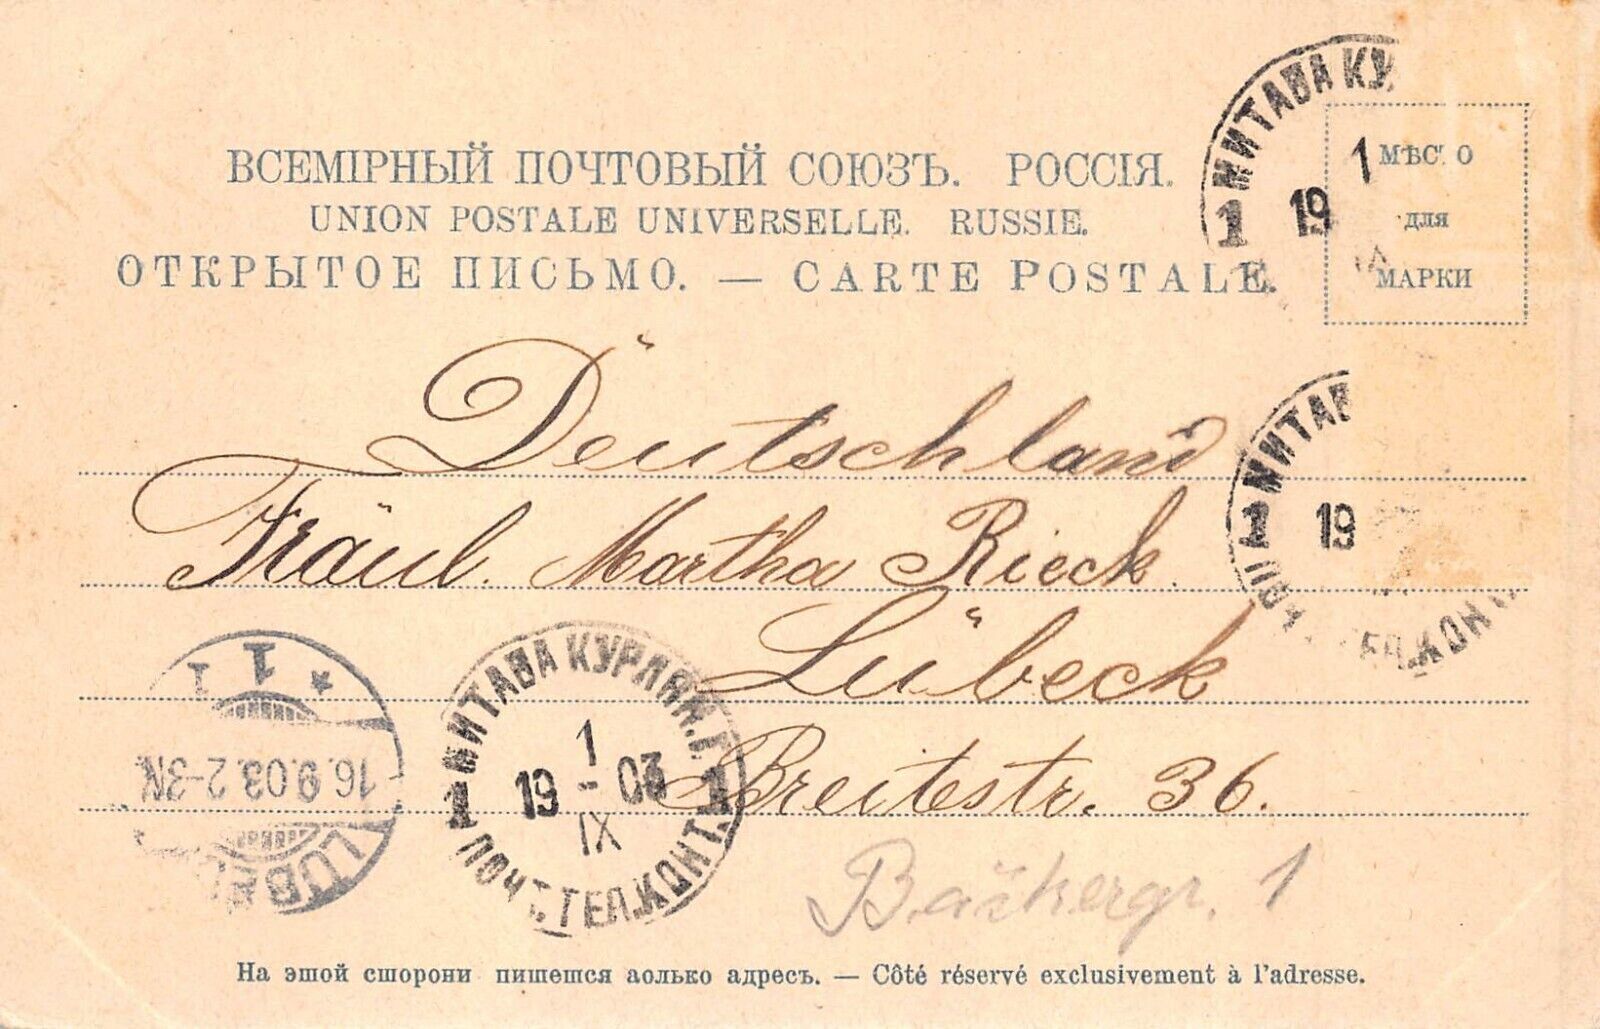 ВСЕМІРНЫЙ ПОЧТОВЫЙ СОЮЗЪ. РОССІЯ.
UNION POSTALE UNIVERSELLE. RUSSIE.
ОТКРЫТОЕ ПИСЬМО. — CARTE POSTALE.
МѢСТО
ДЛЯ
МАРКИ
МИТАВА КУ
1
19
1
Deutschland
МИТАВ
1
19
Fräul. Martha Rieck
Lübeck
МИТАВА КУРЛЯН. Г.
1
1
19 - 03
IX
1
ПОЧТ. ТЕЛ. КОНТ.
1 1 *
16.9.03.2-3N
LÜBE
Breitestr. 36.
Bäckergr. 1
На эшой сшорони пишешся аолько адресъ. — Côté réservé exclusivement à l'adresse.